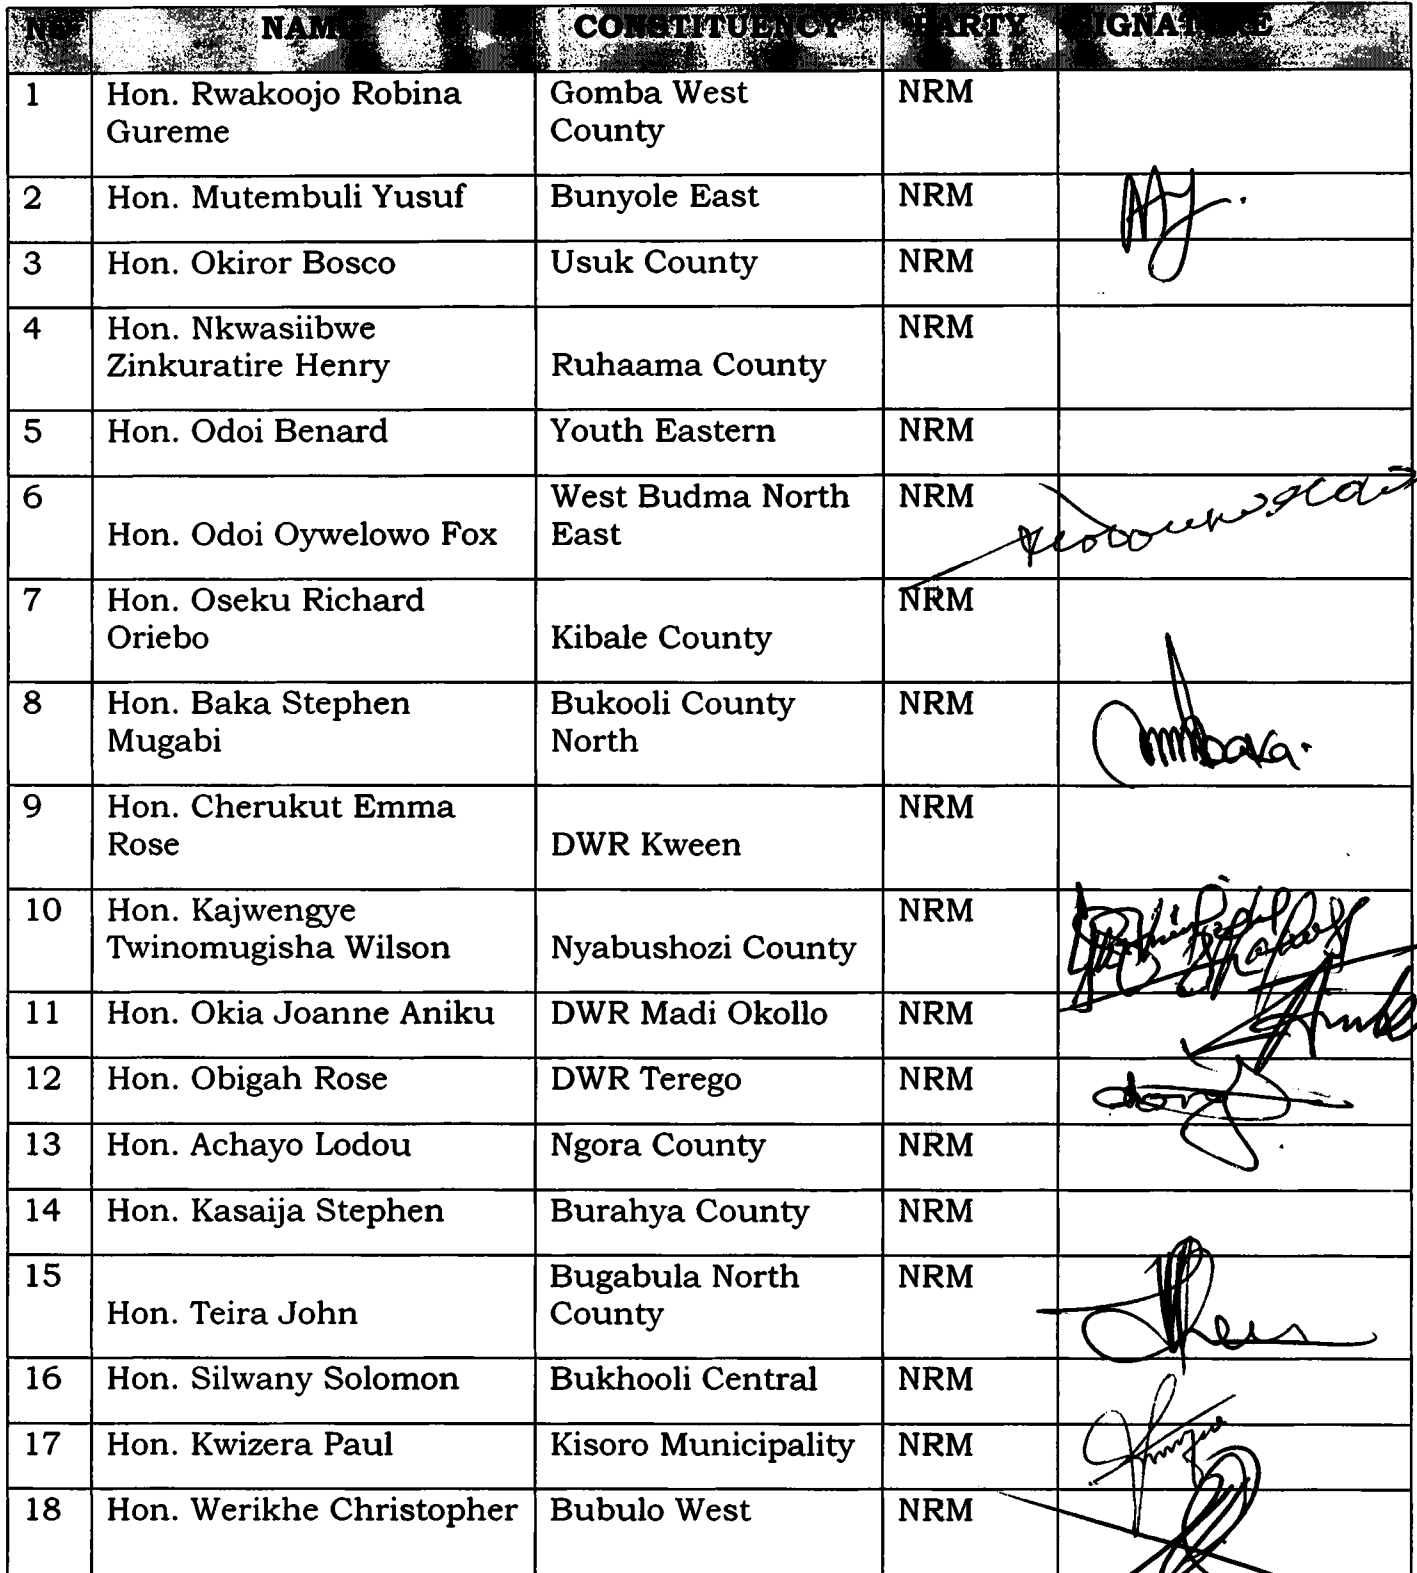 NO NAME CONSTITUENCY PARTY SIGNATURE
1 Hon. Rwakoojo Robina Gomba West NRM
Gureme County
2 Hon. Mutembuli Yusuf Bunyole East NRM
3 Hon. Okiror Bosco Usuk County NRM
4 Hon. Nkwasiibwe NRM
Zinkuratire Henry Ruhaama County
5 Hon. Odoi Benard Youth Eastern NRM
6 West Budma North NRM
Hon. Odoi Oywelowo Fox East
7 Hon. Oseku Richard NRM
Oriebo Kibale County
8 Hon. Baka Stephen Bukooli County NRM
Mugabi North
9 Hon. Cherukut Emma NRM
Rose DWR Kween
10 Hon. Kajwengye NRM
Twinomugisha Wilson Nyabushozi County
11 Hon. Okia Joanne Aniku DWR Madi Okollo NRM
12 Hon. Obigah Rose DWR Terego NRM
13 Hon. Achayo Lodou Ngora County NRM
14 Hon. Kasaija Stephen Burahya County NRM
15 Bugabula North NRM
Hon. Teira John County
16 Hon. Silwany Solomon Bukhooli Central NRM
17 Hon. Kwizera Paul Kisoro Municipality NRM
18 Hon. Werikhe Christopher Bubulo West NRM